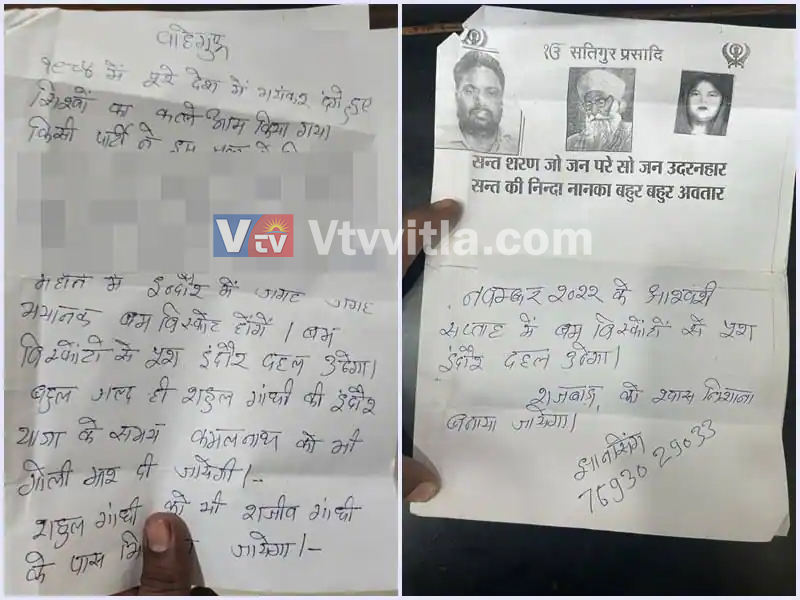 वाहेगुरू
१९८४ में पूरे देश में भयंकर दंगे हुए
सिखों का कत्ले आम किया गया
किसी पार्टी ने इस
में इन्दौर में जगह जगह
भयानक बम विस्फोट होंगें। बम
विस्फोटों से पूरा इंदौर दहल उठेगा।
बहुत जल्द ही राहुल गांधी की इंदौर
यात्रा के समय कमलनाथ को भी
गोली मार दी जायेगी।-
राहुल गांधी को भी राजीव गांधी
के पास जायेगा।-
V VTV Vtvvitla.com
ੴ सतिगुर प्रसादि
सन्त शरण जो जन परे सो जन उदरनहार
सन्त की निन्दा नानका बहुर बहुर अवतार
नवम्बर २०२२ के आखरी
सप्ताह में बम विस्फोटों से पूरा
इंदौर दहल उठेगा।
राजवाड़ा को खास निशाना
बनाया जायेगा।
ज्ञानसिंग
76930 29033